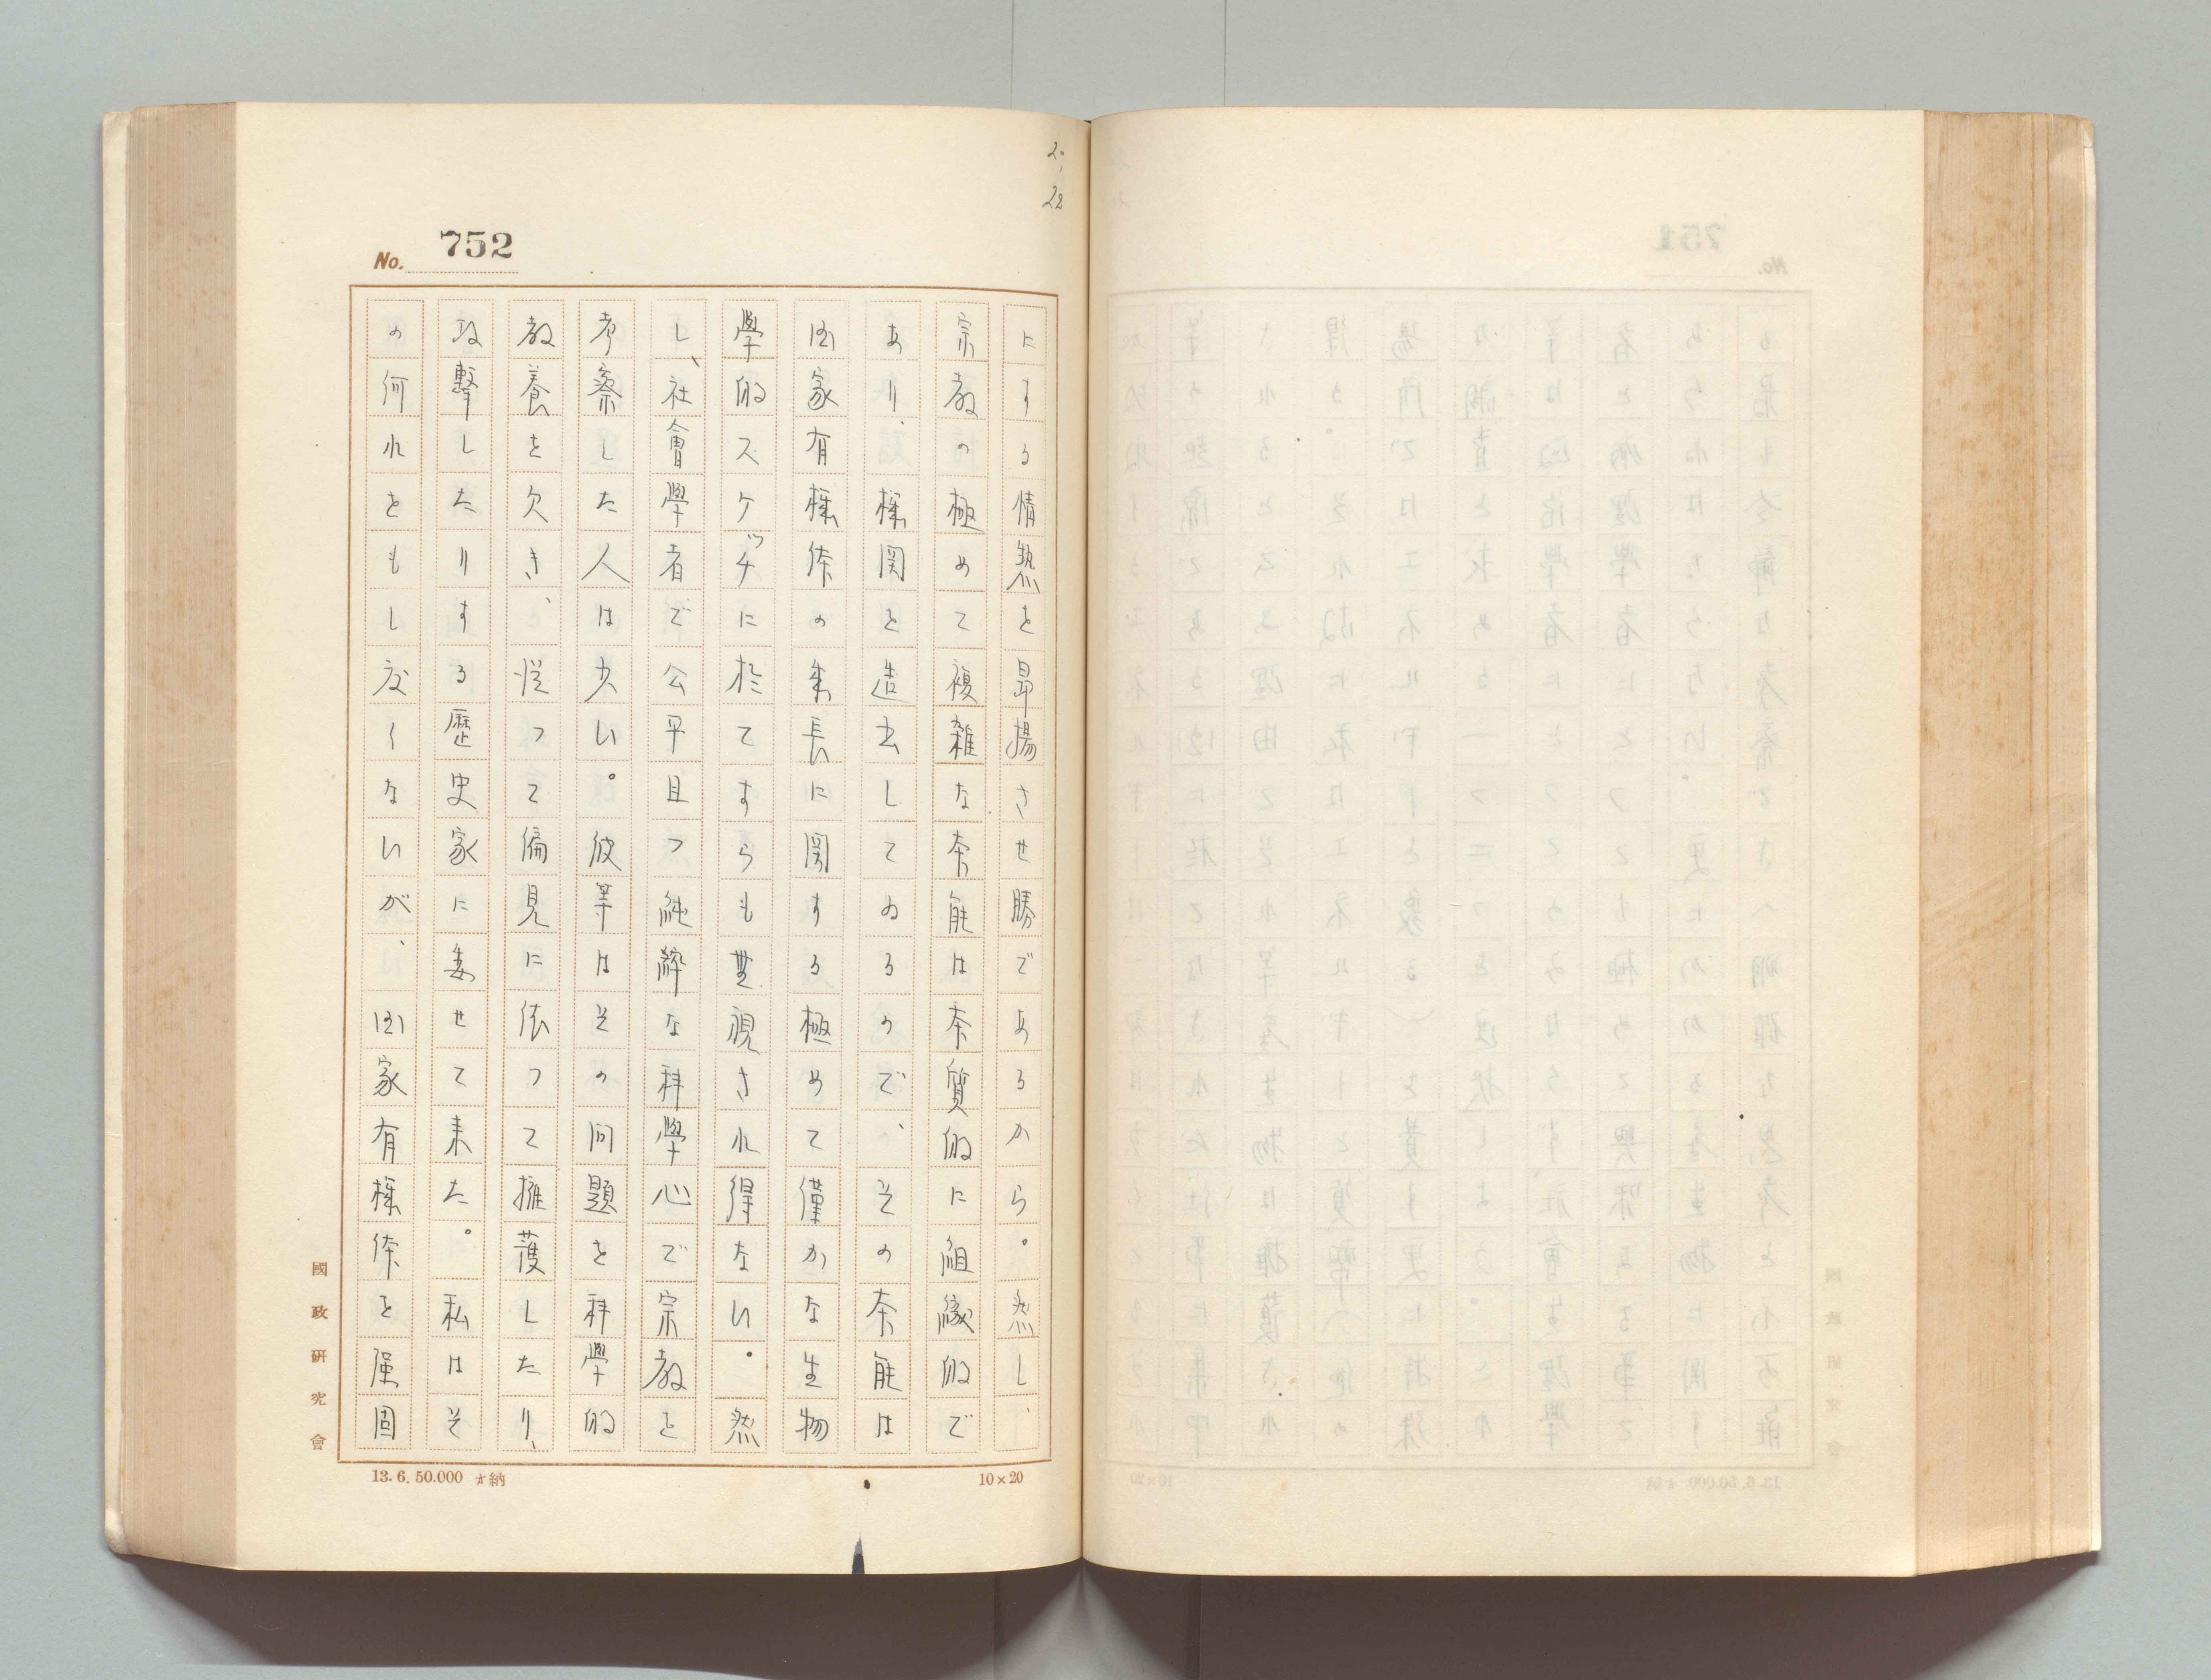 2.
22
No. 752
にする情熱を昻揚させ勝であるから。然し、
宗教の極めて複雑な本能は本質的に組織的で
あり、機関を造出してゐるので、その本能は
国家有機体の集長に関する極めて僅かな生物
學的スケッチに於てすらも無視され得ない。然
し、社會學者で公平且つ純粋な科學心で宗教を
考察した人は少い。彼等はその問題を科學的
教養を欠き、従って偏見に依って擁護したり、
攻撃したりする歴史家に委せて来た。私はそ
の何れをもし度くないが、国家有機体を強固
國政研究會
13.6.50.000 納
10×20